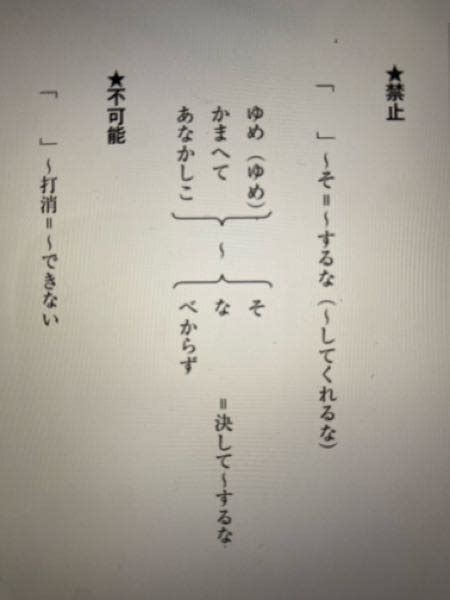 ★禁止
「　　」～そ＝～するな（～してくれるな）
ゆめ（ゆめ）
かまへて
あなかしこ
～
そ
な
べからず
＝決して～するな
★不可能
「　　」～打消＝～できない